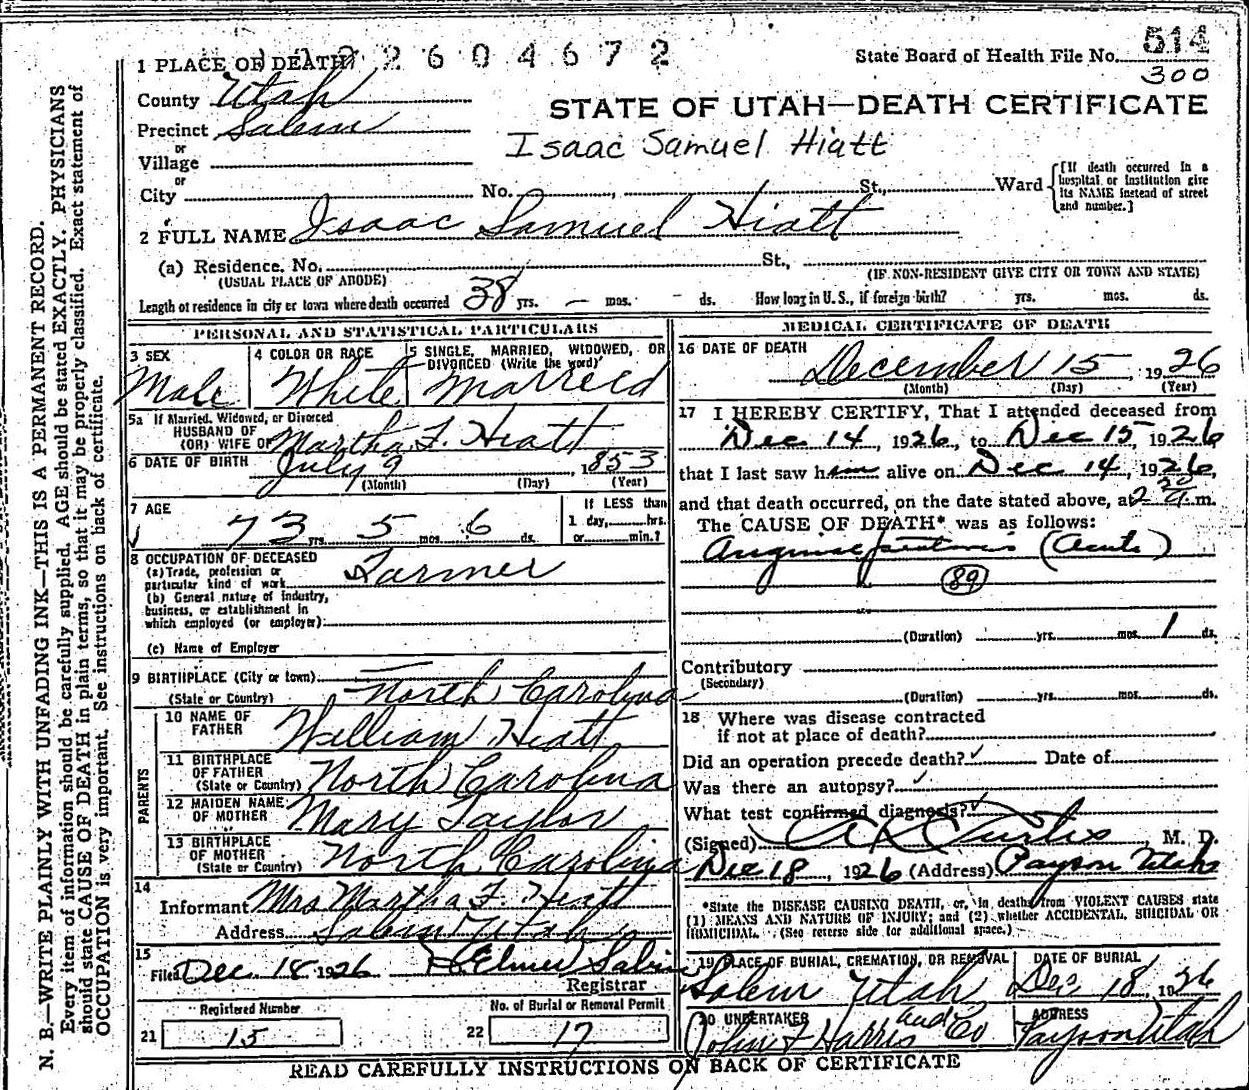 N. B.—WRITE PLAINLY WITH UNFADING INK—THIS IS A PERMANENT RECORD.
Every item of information should be carefully supplied. AGE should be stated EXACTLY. PHYSICIANS
should state CAUSE OF DEATH in plain terms, so that it may be properly classified. Exact statement of
OCCUPATION is very important. See instructions on back of certificate.
2604672
State Board of Health File No. 514
300
1 PLACE OF DEATH
County Utah
STATE OF UTAH—DEATH CERTIFICATE
Precinct Salem
or
Village
Isaac Samuel Hiatt
or
City No. St., Ward
[If death occurred in a
hospital or institution give
its NAME instead of street
and number.]
2 FULL NAME Isaac Samuel Hiatt
(a) Residence. No. St.,
(USUAL PLACE OF ABODE) (IF NON-RESIDENT GIVE CITY OR TOWN AND STATE)
Length of residence in city or town where death occurred 38 yrs. — mos. - ds. How long in U.S., if foreign birth? yrs. mos. ds.
PERSONAL AND STATISTICAL PARTICULARS
3 SEX
Male
4 COLOR OR RACE
White
5 SINGLE, MARRIED, WIDOWED, OR
DIVORCED (Write the word)
Married
5a If Married, Widowed, or Divorced
HUSBAND OF
(OR) WIFE OF Martha F. Hiatt
6 DATE OF BIRTH July 9, 1853
(Month) (Day) (Year)
7 AGE
73 yrs. 5 mos. 6 ds.
If LESS than
1 day, hrs.
or min.?
8 OCCUPATION OF DECEASED
(a) Trade, profession or
particular kind of work Farmer
(b) General nature of industry,
business, or establishment in
which employed (or employer):
(c) Name of Employer
9 BIRTHPLACE (City or town)
(State or Country) North Carolina
PARENTS
10 NAME OF
FATHER William Hiatt
11 BIRTHPLACE
OF FATHER
(State or Country) North Carolina
12 MAIDEN NAME
OF MOTHER Mary Taylor
13 BIRTHPLACE
OF MOTHER
(State or Country) North Carolina
14
Informant Mrs Martha F. Hiatt
Address Salem Utah
15
Filed Dec. 18 1926 Elmer Sabin
Registrar
Registered Number
21 15
No. of Burial or Removal Permit
22 17
MEDICAL CERTIFICATE OF DEATH
16 DATE OF DEATH
December 15, 1926
(Month) (Day) (Year)
17 I HEREBY CERTIFY, That I attended deceased from
Dec 14, 1926, to Dec 15, 1926
that I last saw him alive on Dec 14, 1926,
and that death occurred, on the date stated above, at 2 30 a.m.
The CAUSE OF DEATH* was as follows:
Angina pectoris (acute)
89
(Duration) yrs. mos. 1 ds.
Contributory
(Secondary)
(Duration) yrs. mos. ds.
18 Where was disease contracted
if not at place of death?
Did an operation precede death? ✓ Date of
Was there an autopsy? ✓
What test confirmed diagnosis? ✓
(Signed) Curtis M. D.
Dec 18, 1926 (Address) Payson Utah
*State the DISEASE CAUSING DEATH, or, in deaths from VIOLENT CAUSES state
(1) MEANS AND NATURE OF INJURY; and (2) whether ACCIDENTAL, SUICIDAL OR
HOMICIDAL. (See reverse side for additional space.)
19 PLACE OF BURIAL, CREMATION, OR REMOVAL
Salem Utah
DATE OF BURIAL
Dec 18, 1926
20 UNDERTAKER
John F Harris and Co
ADDRESS
Payson Utah
READ CAREFULLY INSTRUCTIONS ON BACK OF CERTIFICATE